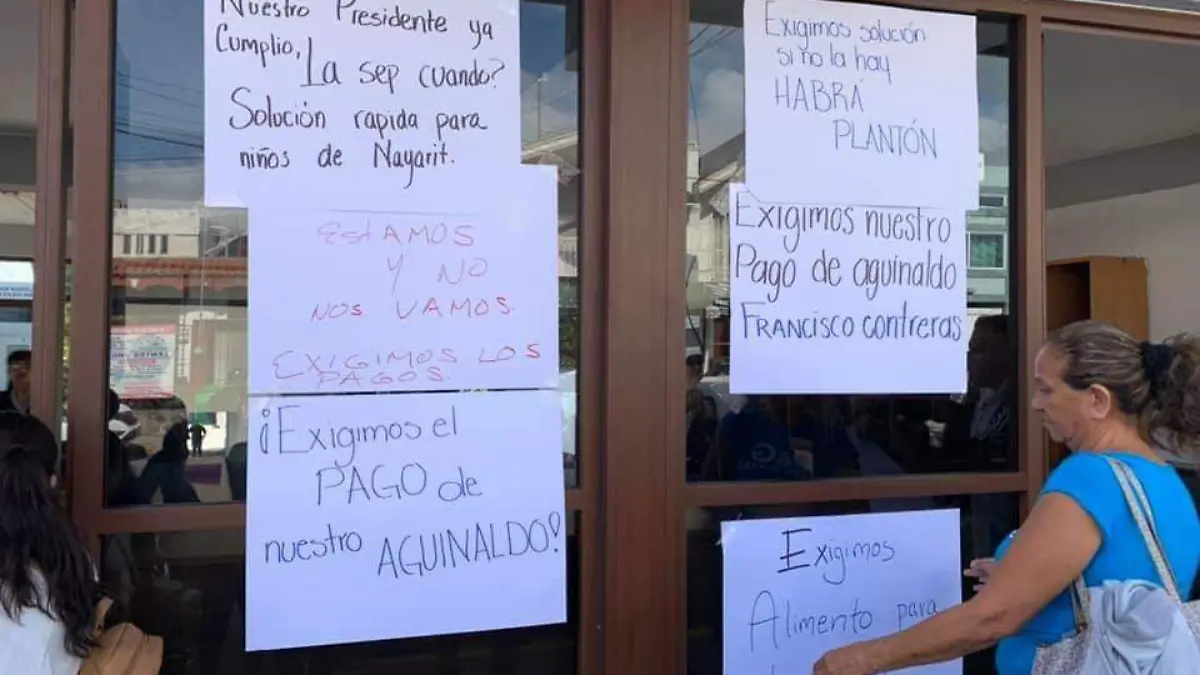 Nuestro Presidente ya
Cumplio, La sep cuando?
Solución rapida para
niños de Nayarit.
EstAMOS
Y NO
NOS VAMOS.
EXIGIMOS LOS
PAGOS.
¡Exigimos el
PAGO de
nuestro AGUINALDO!
Exigimos solución
si no la hay
HABRÁ
PLANTÓN
Exigimos nuestro
Pago de aguinaldo
FRANCISCO contreras
Exigimos
Alimento para